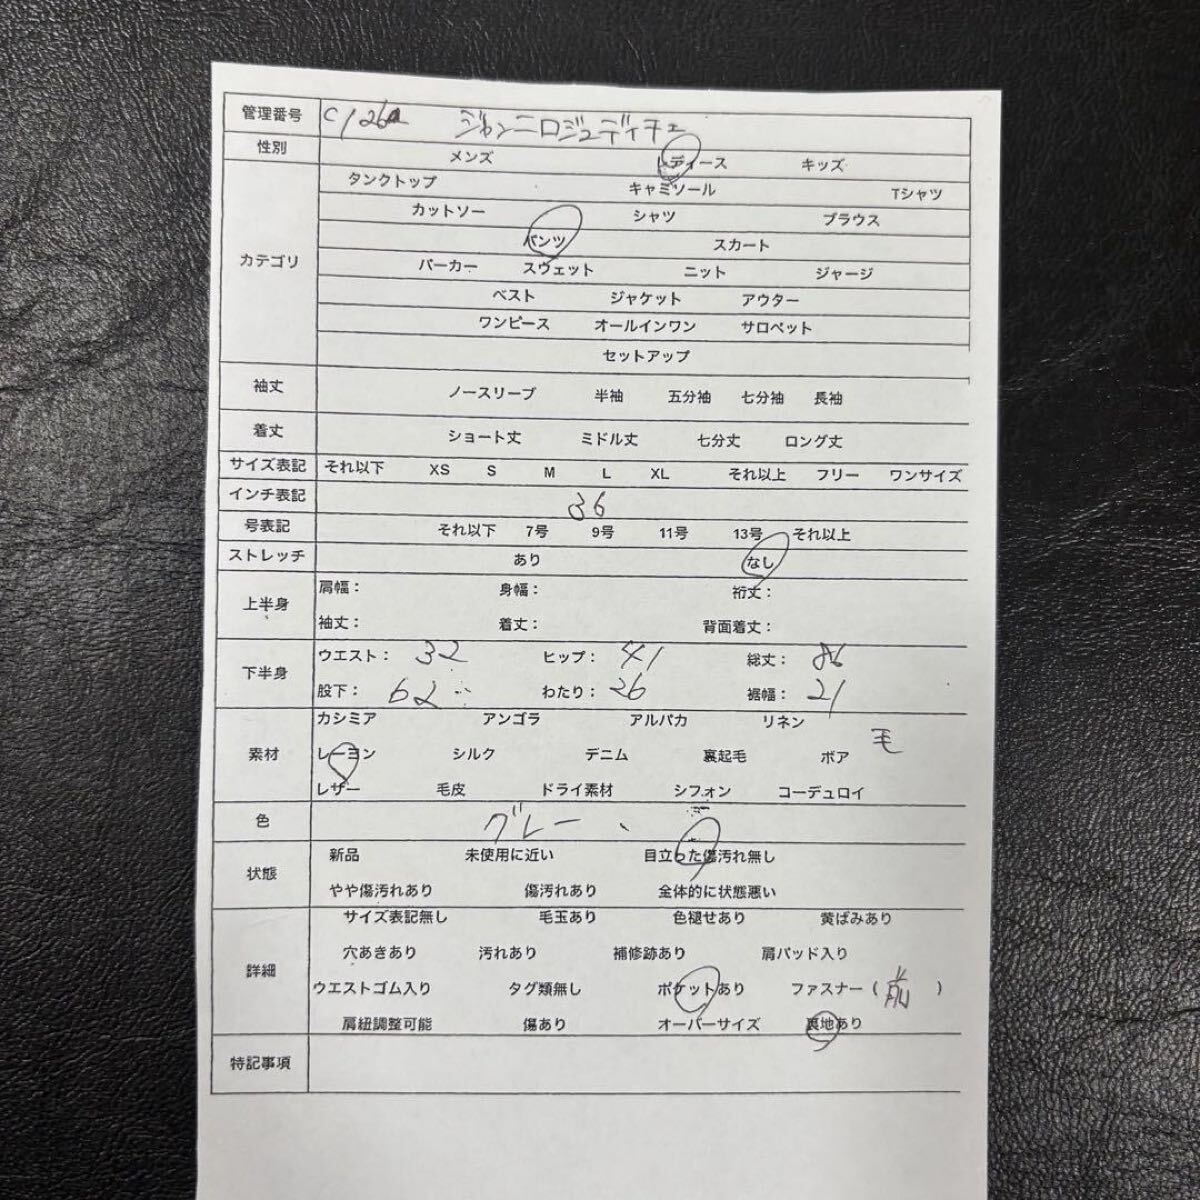 管理番号 C/26 ジャンニロジュディチェ
性別 メンズ レディース キッズ
タンクトップ キャミソール Tシャツ
カットソー シャツ ブラウス
パンツ スカート
カテゴリ パーカー スウェット ニット ジャージ
ベスト ジャケット アウター
ワンピース オールインワン サロペット
セットアップ
袖丈 ノースリーブ 半袖 五分袖 七分袖 長袖
着丈 ショート丈 ミドル丈 七分丈 ロング丈
サイズ表記 それ以下 XS S M L XL それ以上 フリー ワンサイズ
インチ表記 36
号表記 それ以下 7号 9号 11号 13号 それ以上
ストレッチ あり なし
上半身 肩幅： 身幅： 裄丈：
袖丈： 着丈： 背面着丈：
下半身 ウエスト： 32 ヒップ： 41 総丈： 86
股下： 62 わたり： 26 裾幅： 21
カシミア アンゴラ アルパカ リネン 毛
素材 レーヨン シルク デニム 裏起毛 ボア
レザー 毛皮 ドライ素材 シフォン コーデュロイ
色 グレー
状態 新品 未使用に近い 目立った傷汚れ無し
やや傷汚れあり 傷汚れあり 全体的に状態悪い
サイズ表記無し 毛玉あり 色褪せあり 黄ばみあり
穴あきあり 汚れあり 補修跡あり 肩パッド入り
詳細 ウエストゴム入り タグ類無し ポケットあり ファスナー（ 前 ）
肩紐調整可能 傷あり オーバーサイズ 裏地あり
特記事項